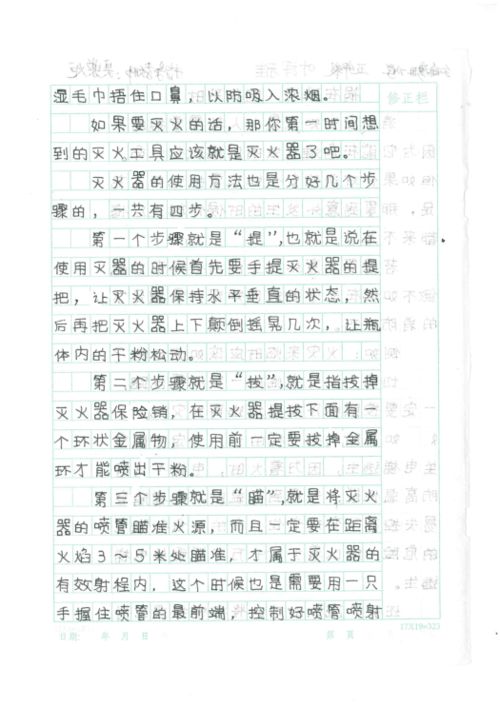 湿毛巾捂住口鼻，以防吸入浓烟。
修正栏
如果要灭火的话，那你第一时间想
到的灭火工具应该就是灭火器了吧。
灭火器的使用方法也是分好几个步
骤的，一共有四步。
第一个步骤就是“提”，也就是说在
使用灭器的时候首先要手提灭火器的提
把，让灭火器保持水平垂直的状态，然
后再把灭火器上下颠倒摇晃几次，让瓶
体内的干粉松动。
第二个步骤就是“拔”，就是指拔掉
灭火器保险销，在灭火器提拔下面有一
个环状金属物，使用前一定要拔掉金属
环才能喷出干粉。
第三个步骤就是“瞄”，就是将灭火
器的喷管瞄准火源，而且一定要在距离
火焰3个5米处瞄准，才属于灭火器的
有效射程内，这个时候也是需要用一只
手握住喷管的最前端，控制好喷管喷射
17X19=323
日期： 年 月 日 第 页